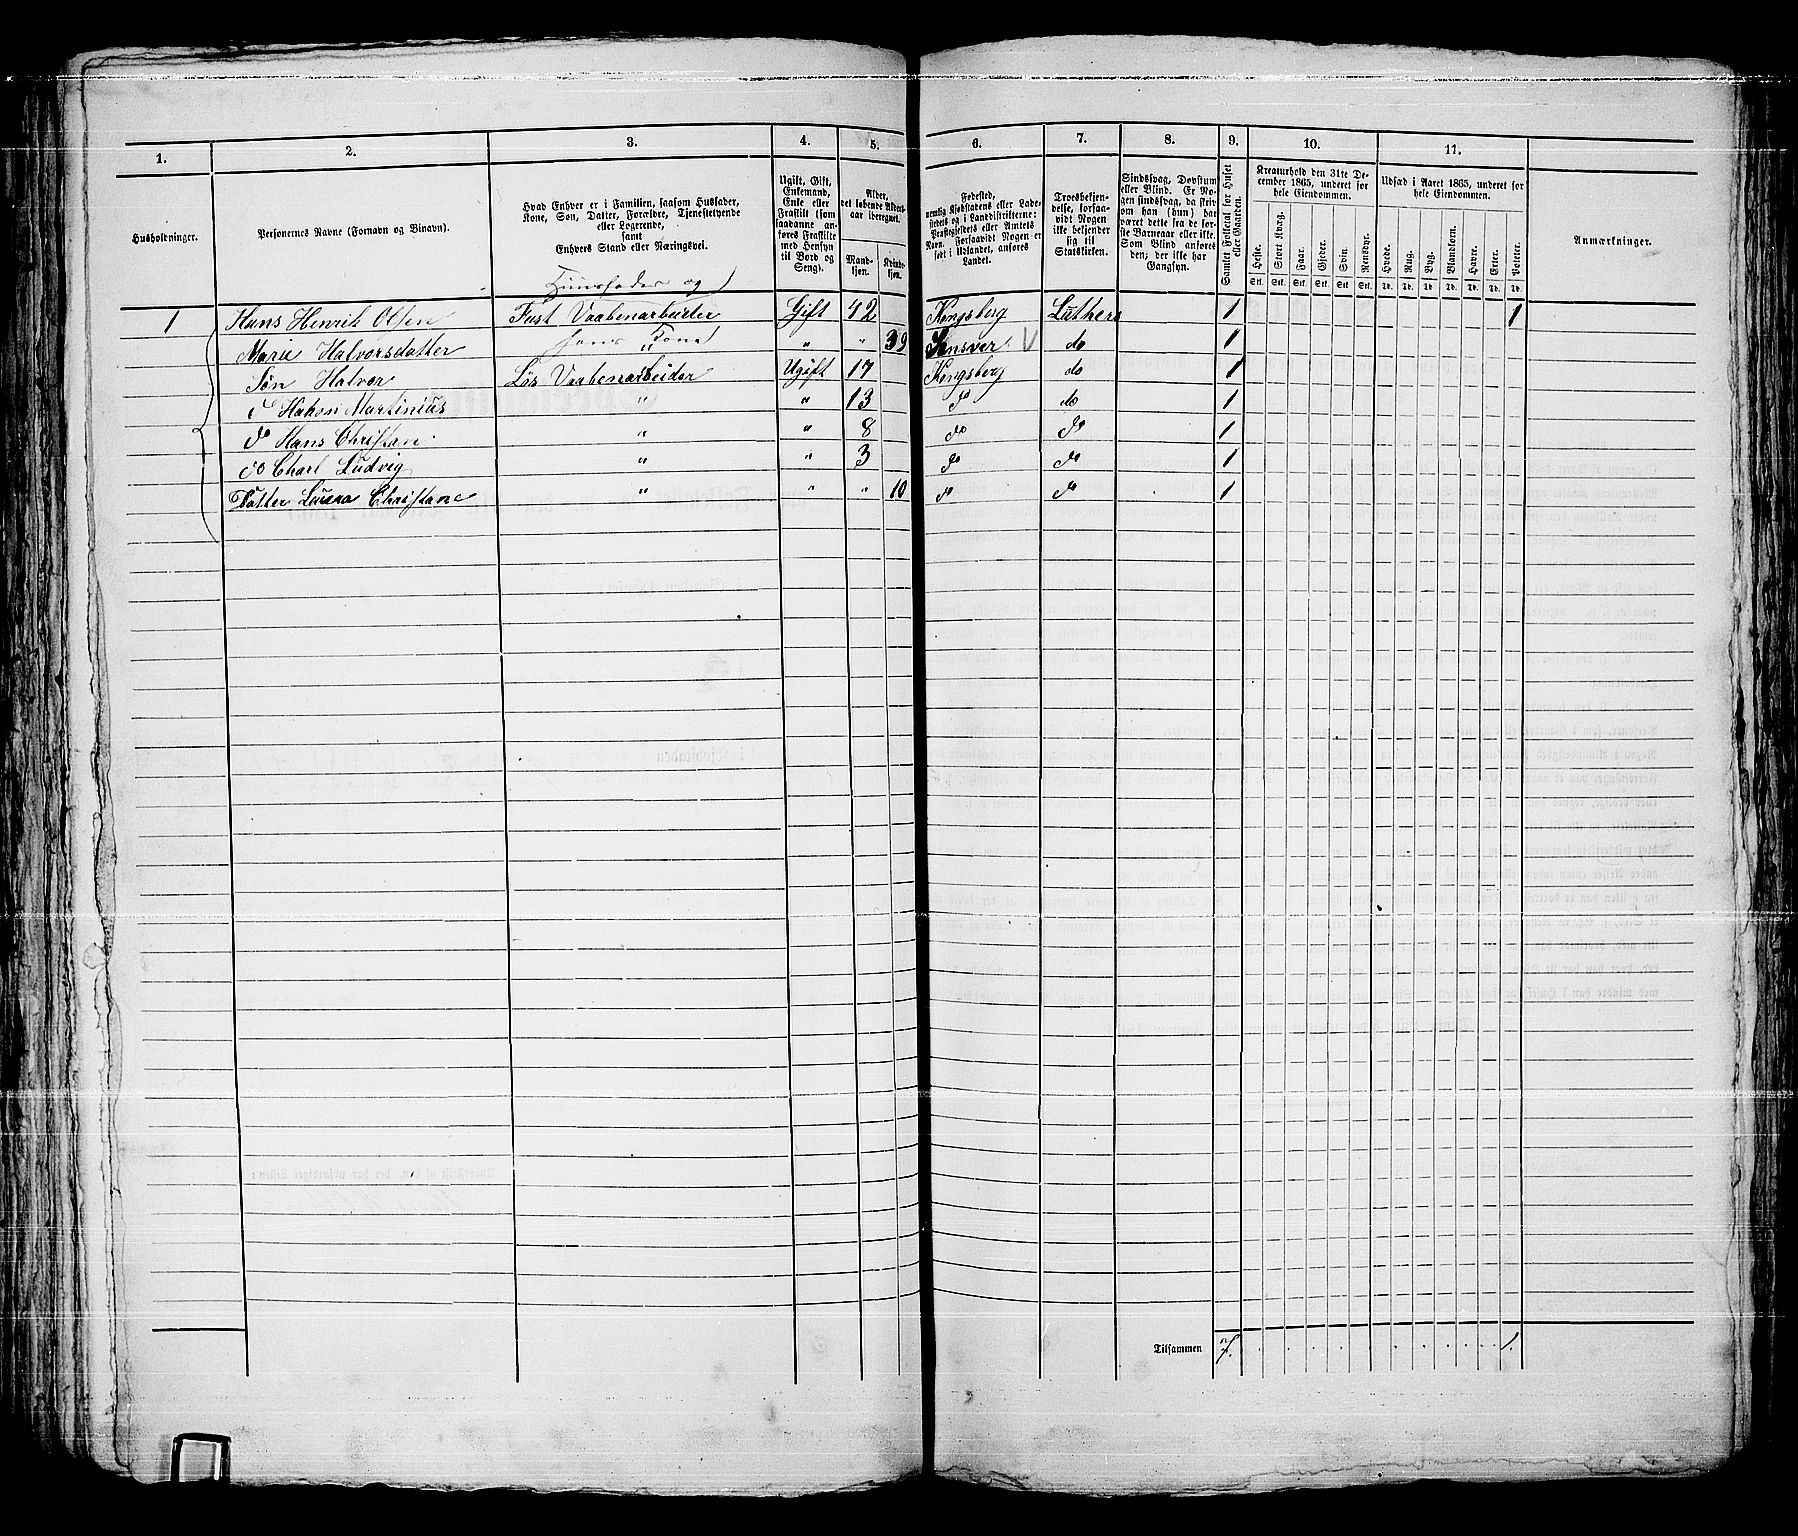 1. 2. 3. 4. 5. 6. 7. 8. 9. 10. 11.
Husholdninger.
Personernes Navne (Fornavn og Binavn).
Hvad Enhver er i Familien, saasom Husfader,
Kone, Søn, Datter, Forældre, Tjenestetyende
eller Logerende,
samt
Enhvers Stand eller Næringsvei.
Ugift, Gift,
Enkemand,
Enke eller
Fraskilt (som
saadanne an-
føres Fraskilte
med Hensyn
til Bord og
Seng).
Alder,
det løbende Alders-
aar iberegnet.
Mand-
kjøn.
Kvinde-
kjøn.
Fødested,
nemlig Kjøbstadens eller Lade-
stedets og i Landdistrikterne:
Præstegjeldets eller Amtets
Navn. Forsaavidt Nogen er
født i Udlandet, anføres
Landet.
Troesbekjen-
delse, forsaa-
vidt Nogen
ikke bekjender
sig til
Statskirken.
Sindssvag, Døvstum
eller Blind. Er No-
gen sindssvag, da skriv
om han (hun) har
været dette fra de før-
ste Barneaar eller ikke.
Som Blind anføres
den, der ikke har
Gangsyn.
Samlet Folketal for Huset
eller Gaarden.
Kreaturhold den 31te De-
cember 1865, underet for
hele Eiendommen.
Heste. Stort Kvæg. Faar. Gjeder. Svin. Rensdyr.
Stk. Stk. Stk. Stk. Stk. Stk.
Udsæd i Aaret 1865, underet for
hele Eiendommen.
Hvede. Rug. Byg. Blandkorn. Havre. Erter. Poteter.
Td. Td. Td. Td. Td. Td. Td.
Anmærkninger.
Huusfader og
1 Hans Henrik Olsen Fast Vaabenarbeider Gift 42 Kongsberg Luthers 1 1
Marie Halvorsdatter hans Kone " " 39 Sansver V do 1
Søn Halvor Løs Vaabenarbeider Ugift 17 Kongsberg do 1
do Hakon Martinius " " 13 do do 1
do Hans Christian " " 8 do do 1
do Charl Ludvig " " 3 do do 1
Datter Christane " " " 10 do do 1
Tilsammen 7. 1.